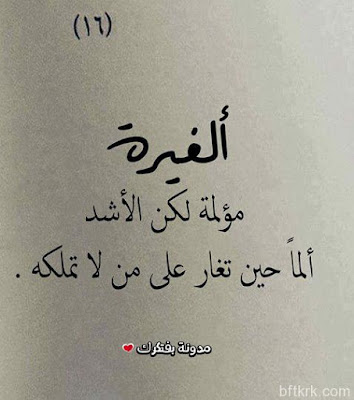 (١٦)
ألغيرة
مؤلمة لكن الأشد
ألماً حين تغار على من لا تملكه .
مدونة بفتكرك ❤
bftkrk.com